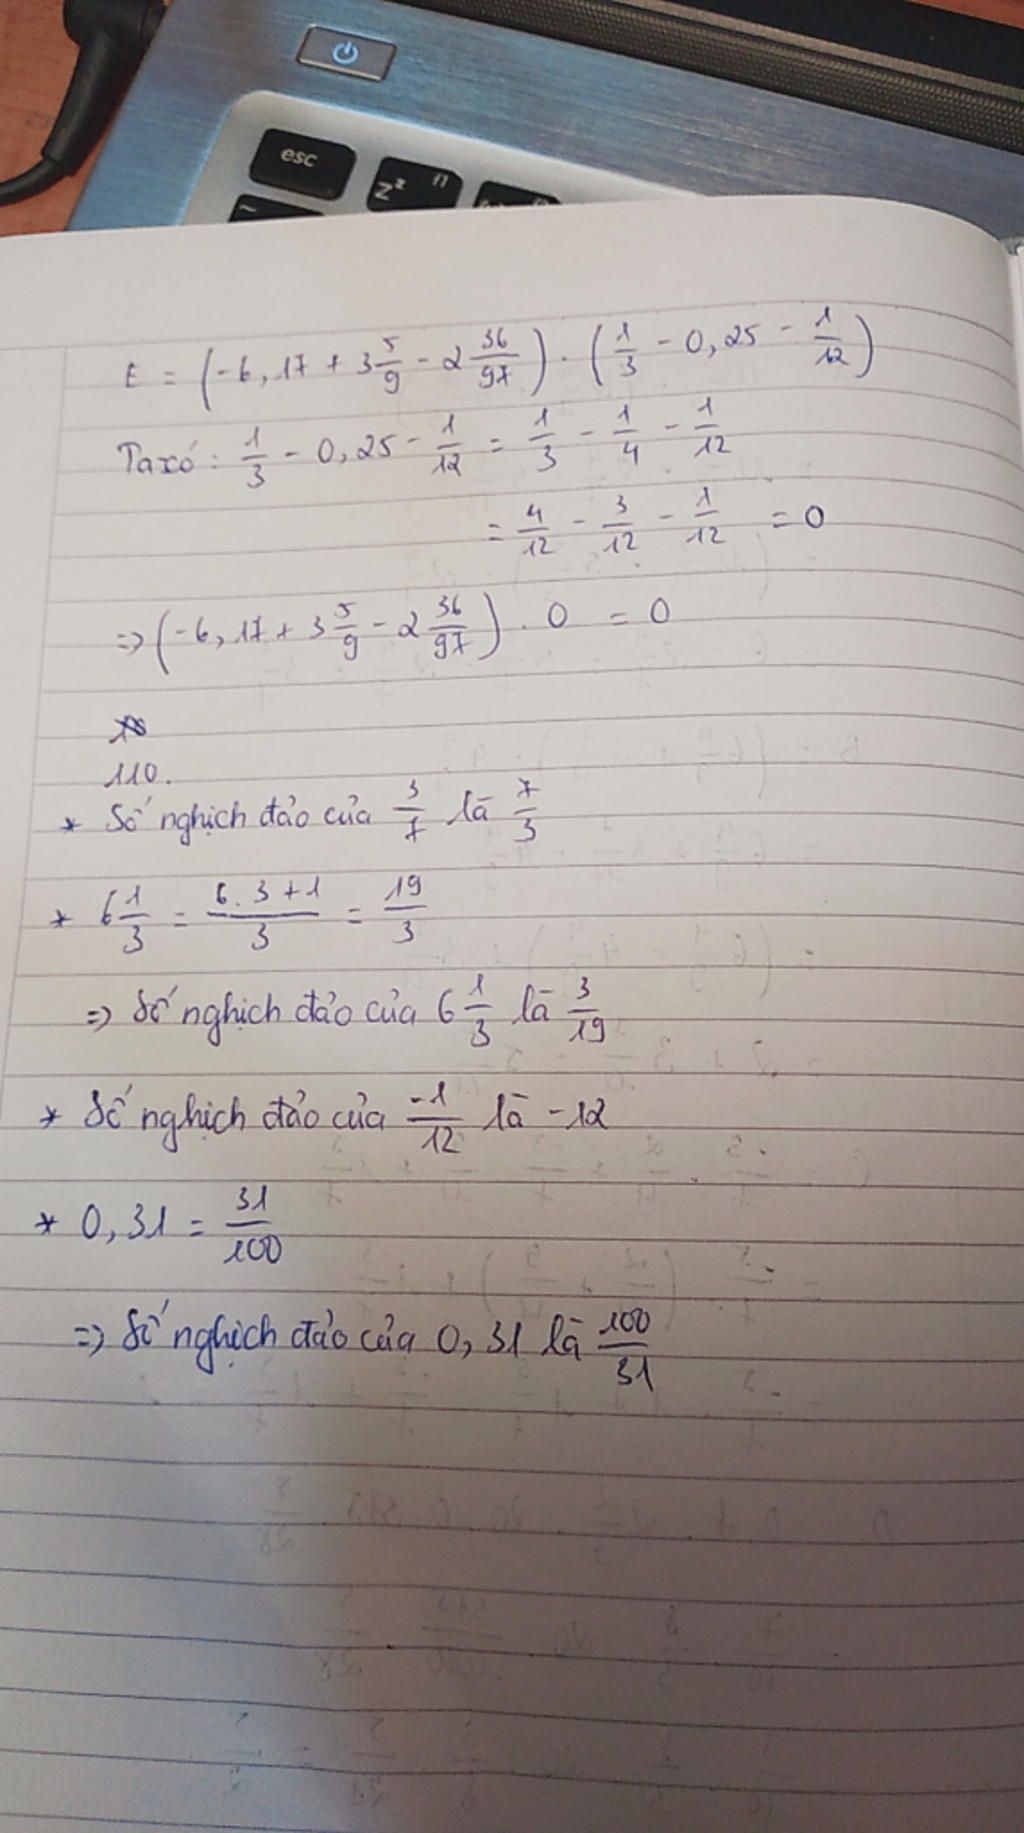 esc
Zz f1
~
E = (-6,17 + 3 5/9 - 2 36/97) . (1/3 - 0,25 - 1/12)
Ta có: 1/3 - 0,25 - 1/12 = 1/3 - 1/4 - 1/12
= 4/12 - 3/12 - 1/12 = 0
=> (-6,17 + 3 5/9 - 2 36/97) . 0 = 0
110.
* Số nghịch đảo của 3/7 là 7/3
* 6 1/3 = (6.3+1)/3 = 19/3
=> Số nghịch đảo của 6 1/3 là 3/19
* Số nghịch đảo của -1/12 là -12
* 0,31 = 31/100
=> Số nghịch đảo của 0,31 là 100/31